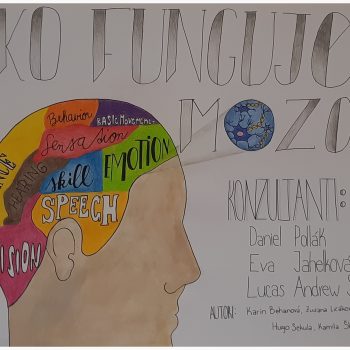 KO FUNGUJE
MOZO
Behavior
BASIC MOVEMENT
Sensation
HEARING
EMOTION
Skill
SPEECH
ISION
KONZULTANTI:
Daniel Pollák
Eva Jahelková
Lucas Andrew S
AUTOŘI: Karin Běhanová, Zuzana
Hugo Sekula, Kamila